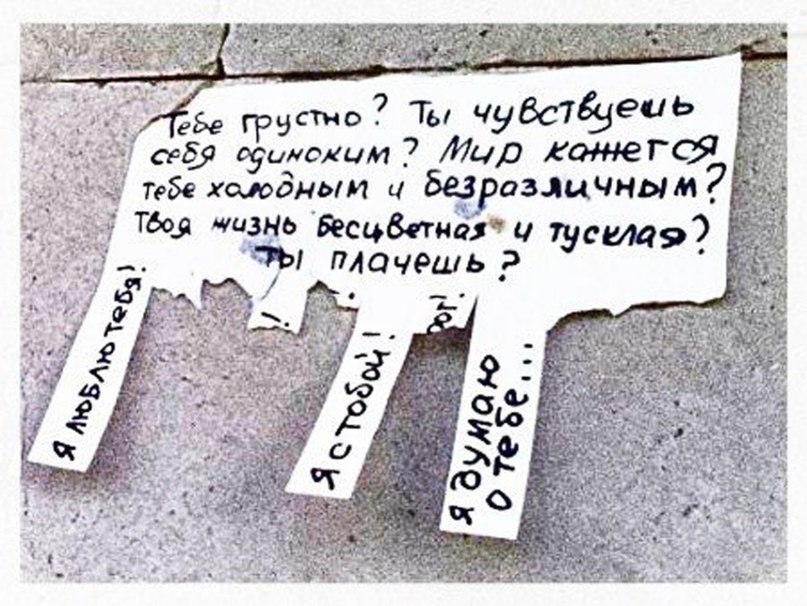 Тебе грустно? Ты чувствуешь
себя одиноким? Мир кажется
тебе холодным и безразличным?
Твоя жизнь бесцветная и тусклая?
Ты плачешь?
Я люблю тебя!
Я с тобой!
Я думаю
о тебе...